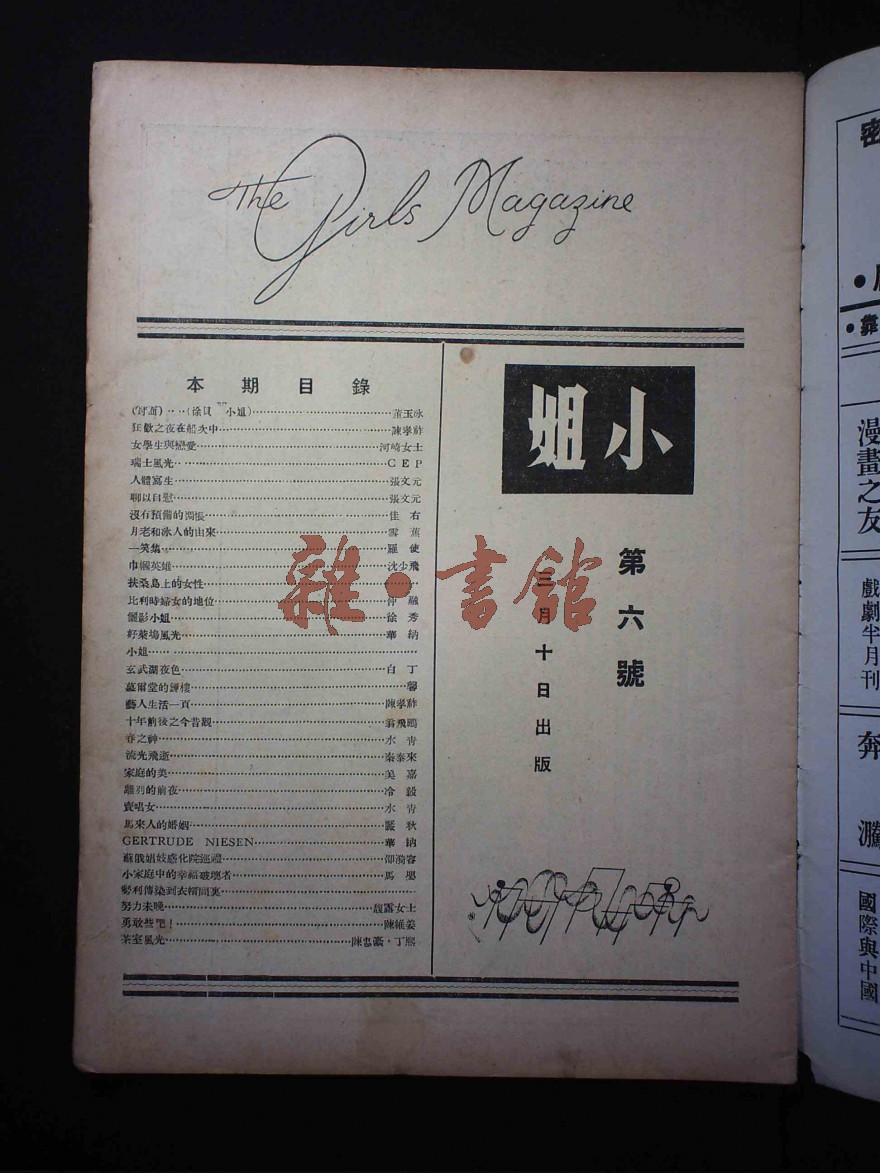 The Girls Magazine
本期目錄
狂歡之夜在船次中 陳孝祚
女學生與戀愛 河崎女士
瑞士風光 CEP
人體寫生 張文元
聊以自慰 張文元
沒有預備的 佳右
月老和冰人的由來 雪蕉
一笑集 羅使
巾幗英雄 沈少飛
扶桑島上的女性
比利時婦女的地位 仲融
儷影小姐 徐秀
好萊塢風光 華納
小姐
玄武湖夜色 白丁
慕爾堂的鐘樓 馨
藝人生活一頁 陳孝祚
十年前後之今昔觀 翁飛鵬
春之神 水青
流光飛逝 秦泰來
家庭的美 吳嘉
離別的前夜 冷毅
賣唱女 水青
馬來人的婚姻 嚴狄
GERTRUDE NIESEN 華納
蘇俄娼妓感化院巡禮 邵漪容
小家庭中的幸福破壞者 馬嬰
勢利傳染到衣帽間裏
努力未晚 女士
勇敢些吧！ 陳維姜
茶室風光 陳惠齡・丁熙
小姐
第六號
三月十日出版
雜・書館
密
靠
漫畫之友
戲劇半月刊
奔騰
國際與中國